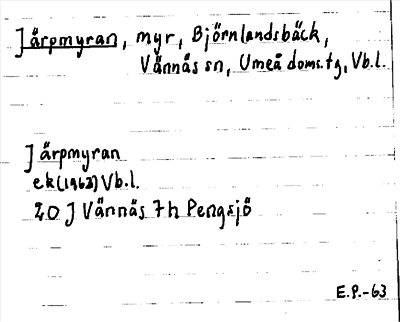 Järpmyran, myr, Björnlandsbäck,
Vännäs sn, Umeå doms.tg, Vb.l.
Järpmyran
ek(1962) Vb.l.
20 J Vännäs 7h Pengsjö
E.P.-63